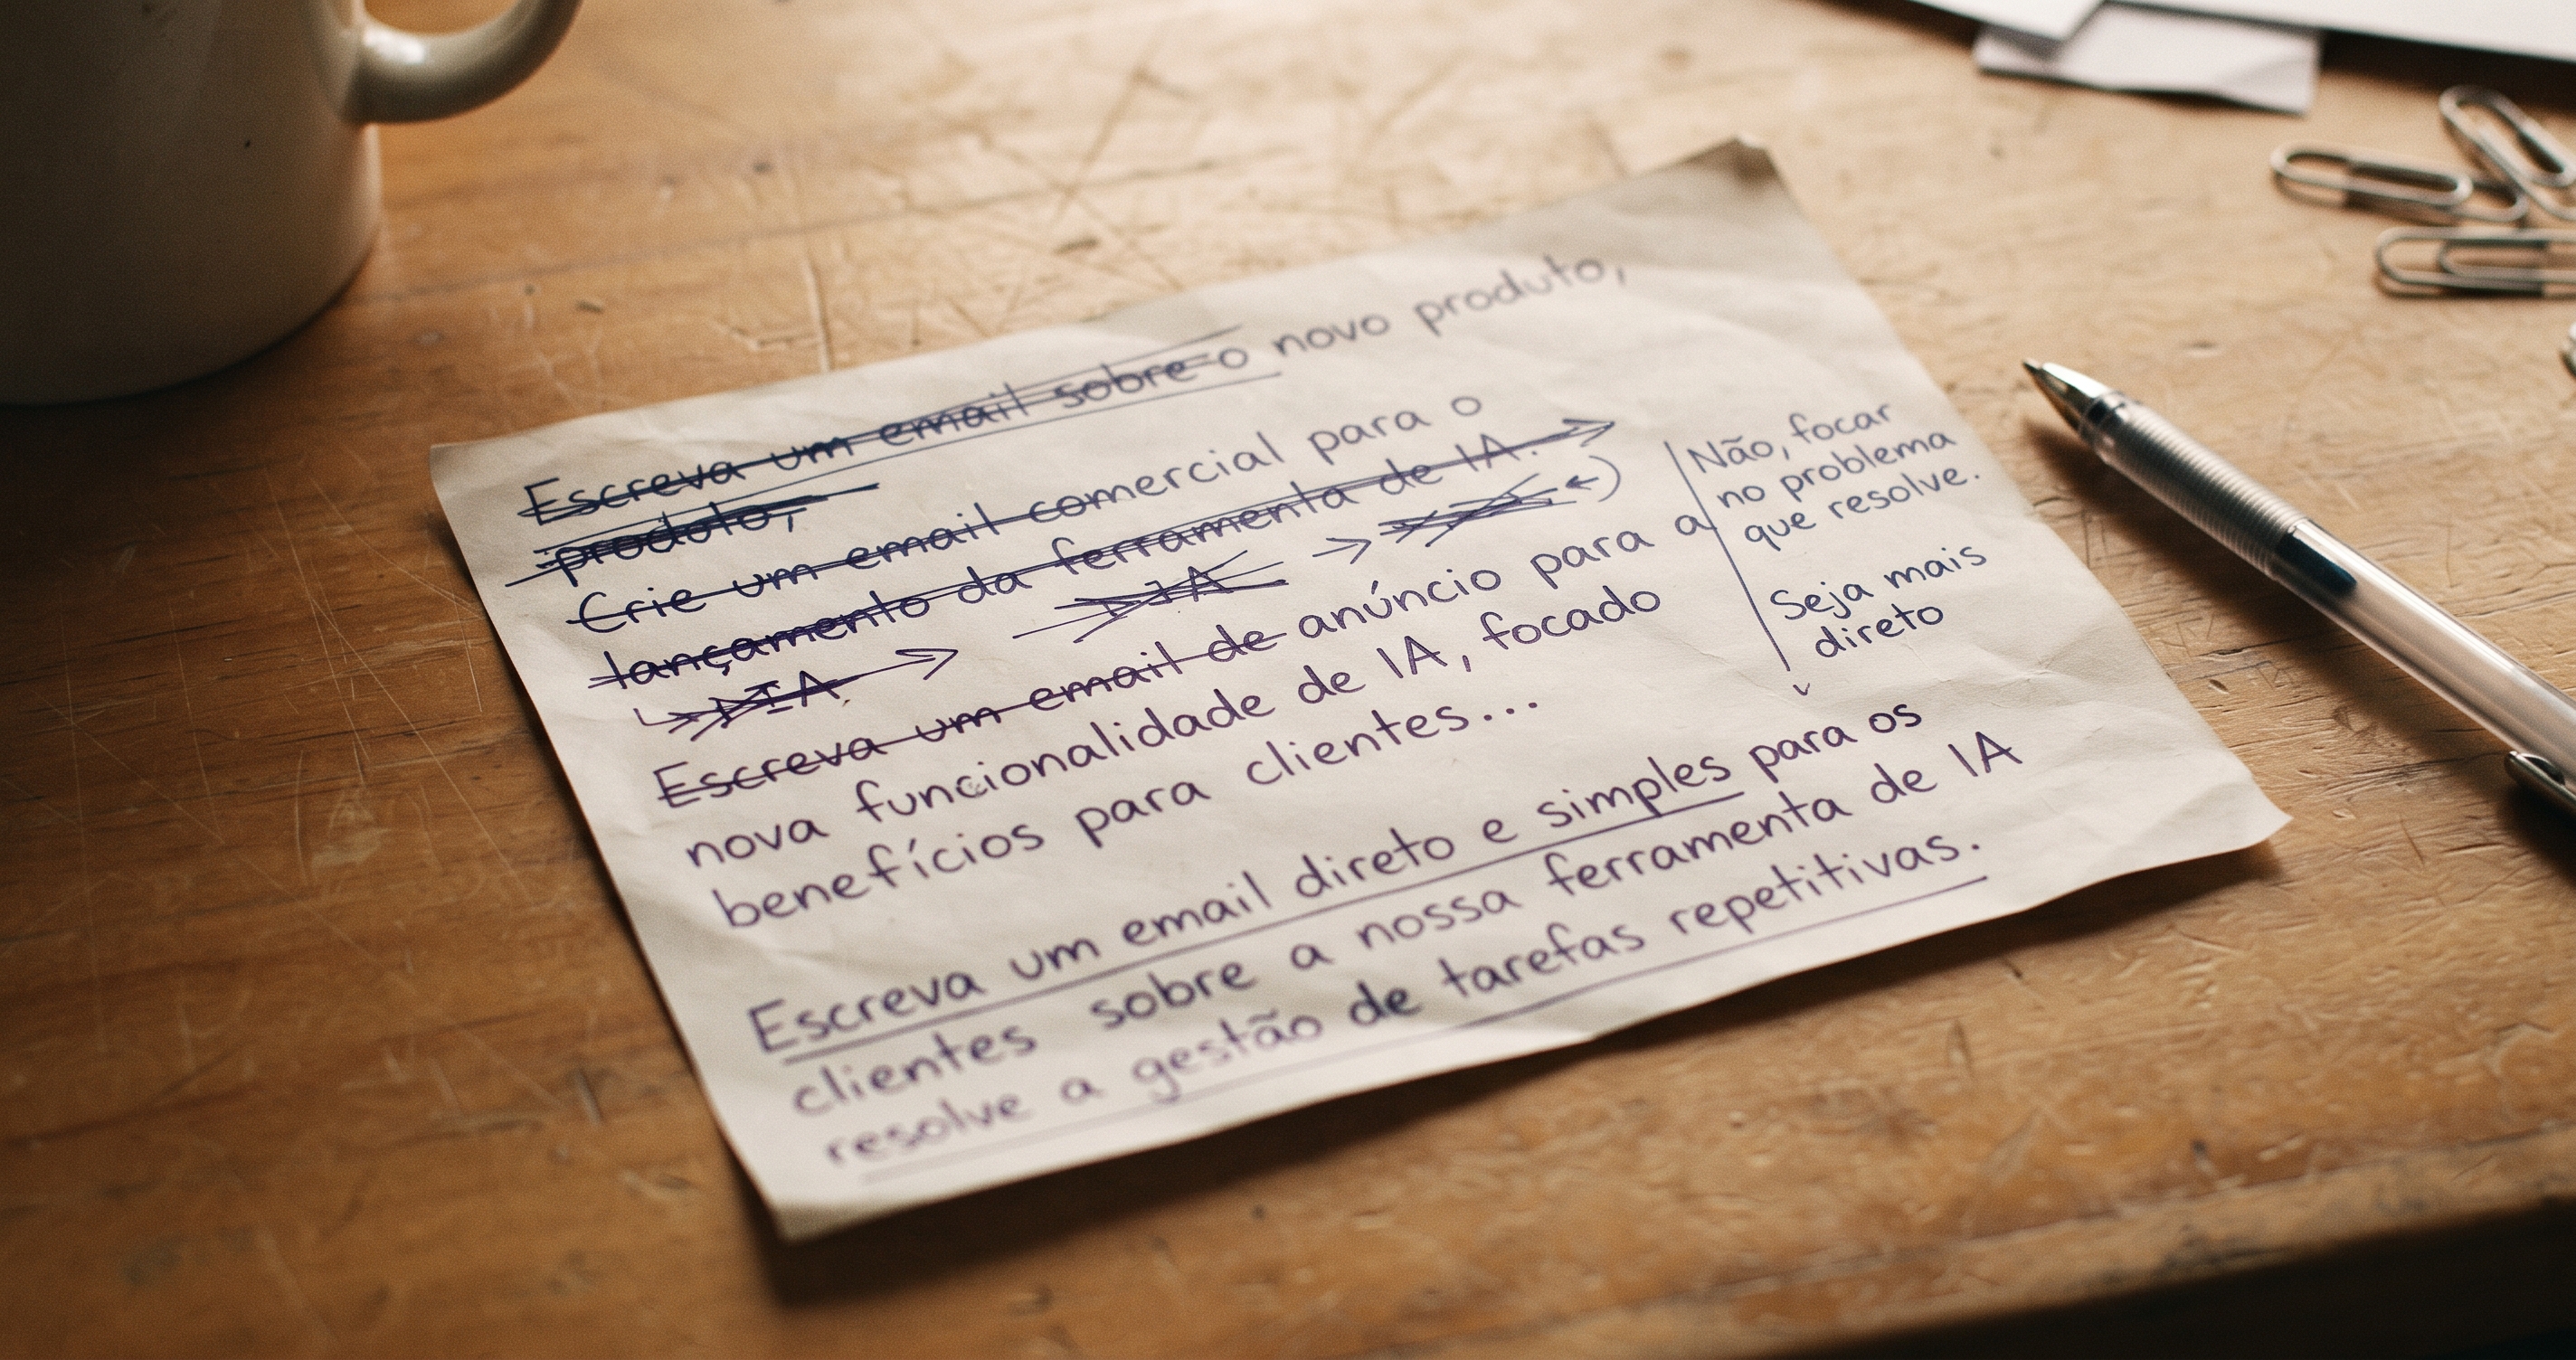 Escreva um email sobre o novo produto,
produto,
Crie um email comercial para o
lançamento da ferramenta de IA.
IA
Escreva um email de anúncio para a
nova funcionalidade de IA, focado
benefícios para clientes...
Não, focar
no problema
que resolve.
Seja mais
direto
Escreva um email direto e simples para os
clientes sobre a nossa ferramenta de IA
resolve a gestão de tarefas repetitivas.